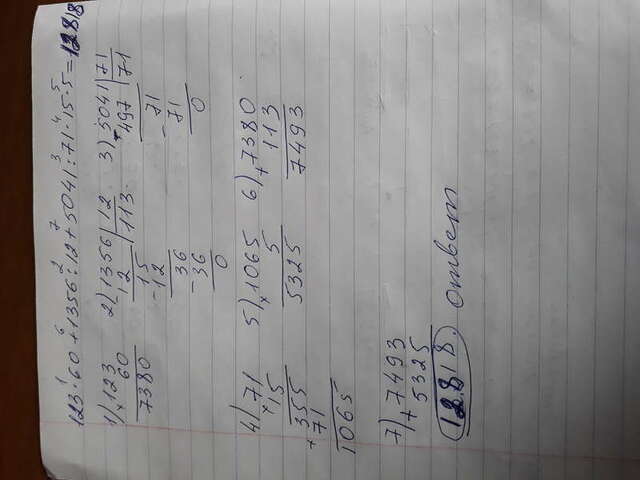 1 6 2 7 3 4 5
123·60+1356:12+5041:71·15·5=12818
1) 123 2) 1356 | 12 3) 5041 | 71
× 60 - 12 | 113 - 497 | 71
7380 15 - 71
- 12 71
36 0
- 36
0
4) 71 5) 1065 6) 7380
× 15 × 5 + 113
355 5325 7493
+ 71
1065
7) + 7493
5325
12818. ответ